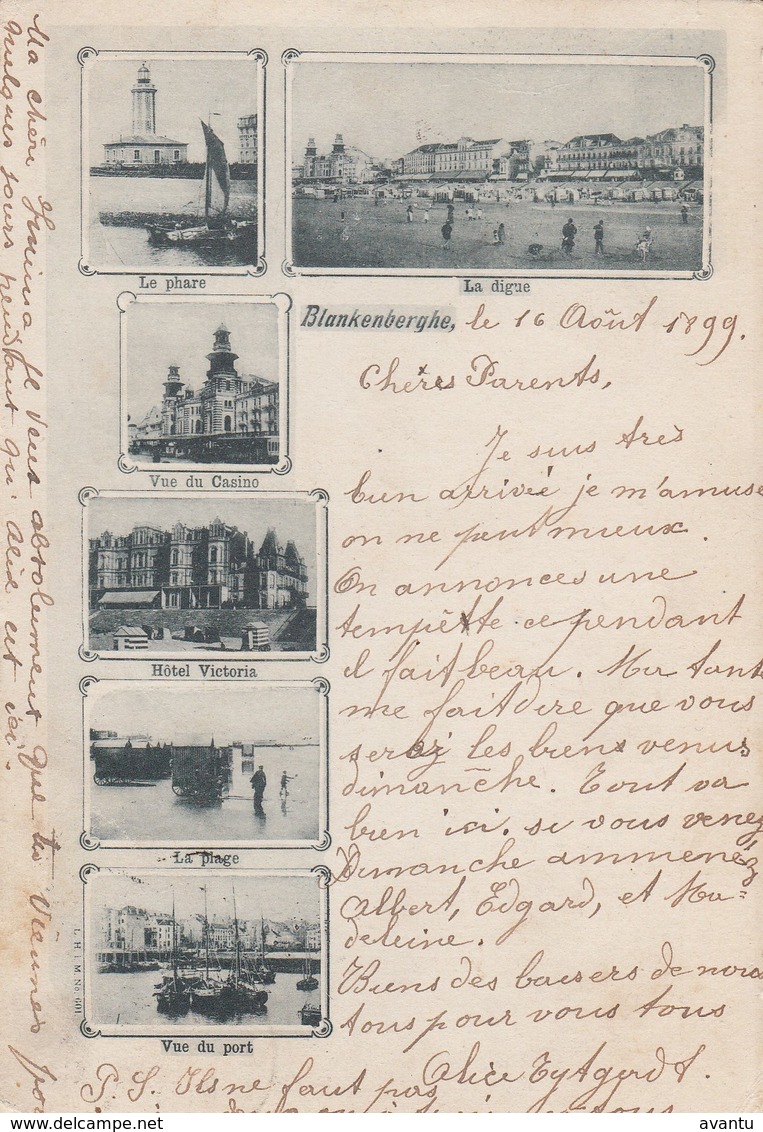 Le phare
La digue
Vue du Casino
Hôtel Victoria
La plage
Vue du port
L. H. i. M. No. 601
Blankenberghe, le 16 Août 1899.
Chères Parents,
Je suis très
bien arrivée je m'amuse
on ne peut mieux.
On annonces une
tempêtte cependant
il fait beau. Ma tante
me fait dire que vous
serez les biens venus
dimanche. Tout va
bien ici. si vous venez
Dimanche ammenez
Albert, Edgard, et Ma=
deleine.
Biens des baisers de nous
tous pour vous tous
Alice Tytgerdt.
P. S. Ils ne faut pas
Ma chère je veus absolument que tu viennes pour
quelques jours pendant qu' Alice est ici.
avantu